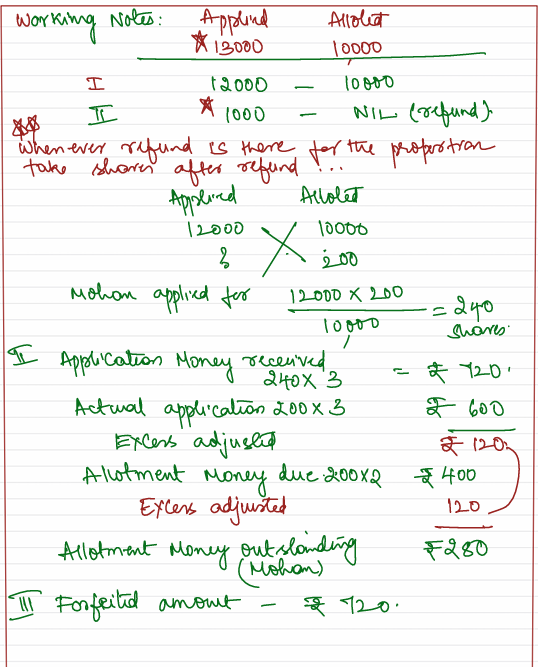 Working Notes: Applied Alloted
13000 10000
I 12000 - 10000
II 1000 - NIL (refund).
Whenever refund is there for the proportion
take shares after refund !...
Applied Alloted
12000 10000
? 200
Mohan applied for 12000 X 200 = 240
10000 shares.
II Application Money received
240 X 3 = ₹ 720.
Actual application 200 X 3 ₹ 600
Excess adjusted ₹ 120
Allotment Money due 200 X 2 ₹ 400
Excess adjusted 120
Allotment Money outstanding ₹ 280
(Mohan)
III Forfeited amount - ₹ 720.